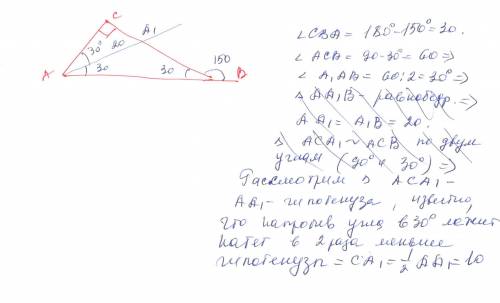 C
A₁
30° 20
150
A 30 30 B
∠CBA = 180° - 150° = 30.
∠ACB = 90 - 30° = 60 =>
∠A₁AB = 60:2 = 30° =>
△AA₁B - равнобедр. =>
AA₁ = A₁B = 20.
△ACA₁ ~ ACB по двум
углам (90° и 30°) =>
Рассмотрим △ ACA₁ -
AA₁ - гипотенуза, известно,
что напротив угла в 30° лежит
катет в 2 раза меньше
гипотенузы = CA₁ = ½ AA₁ = 10